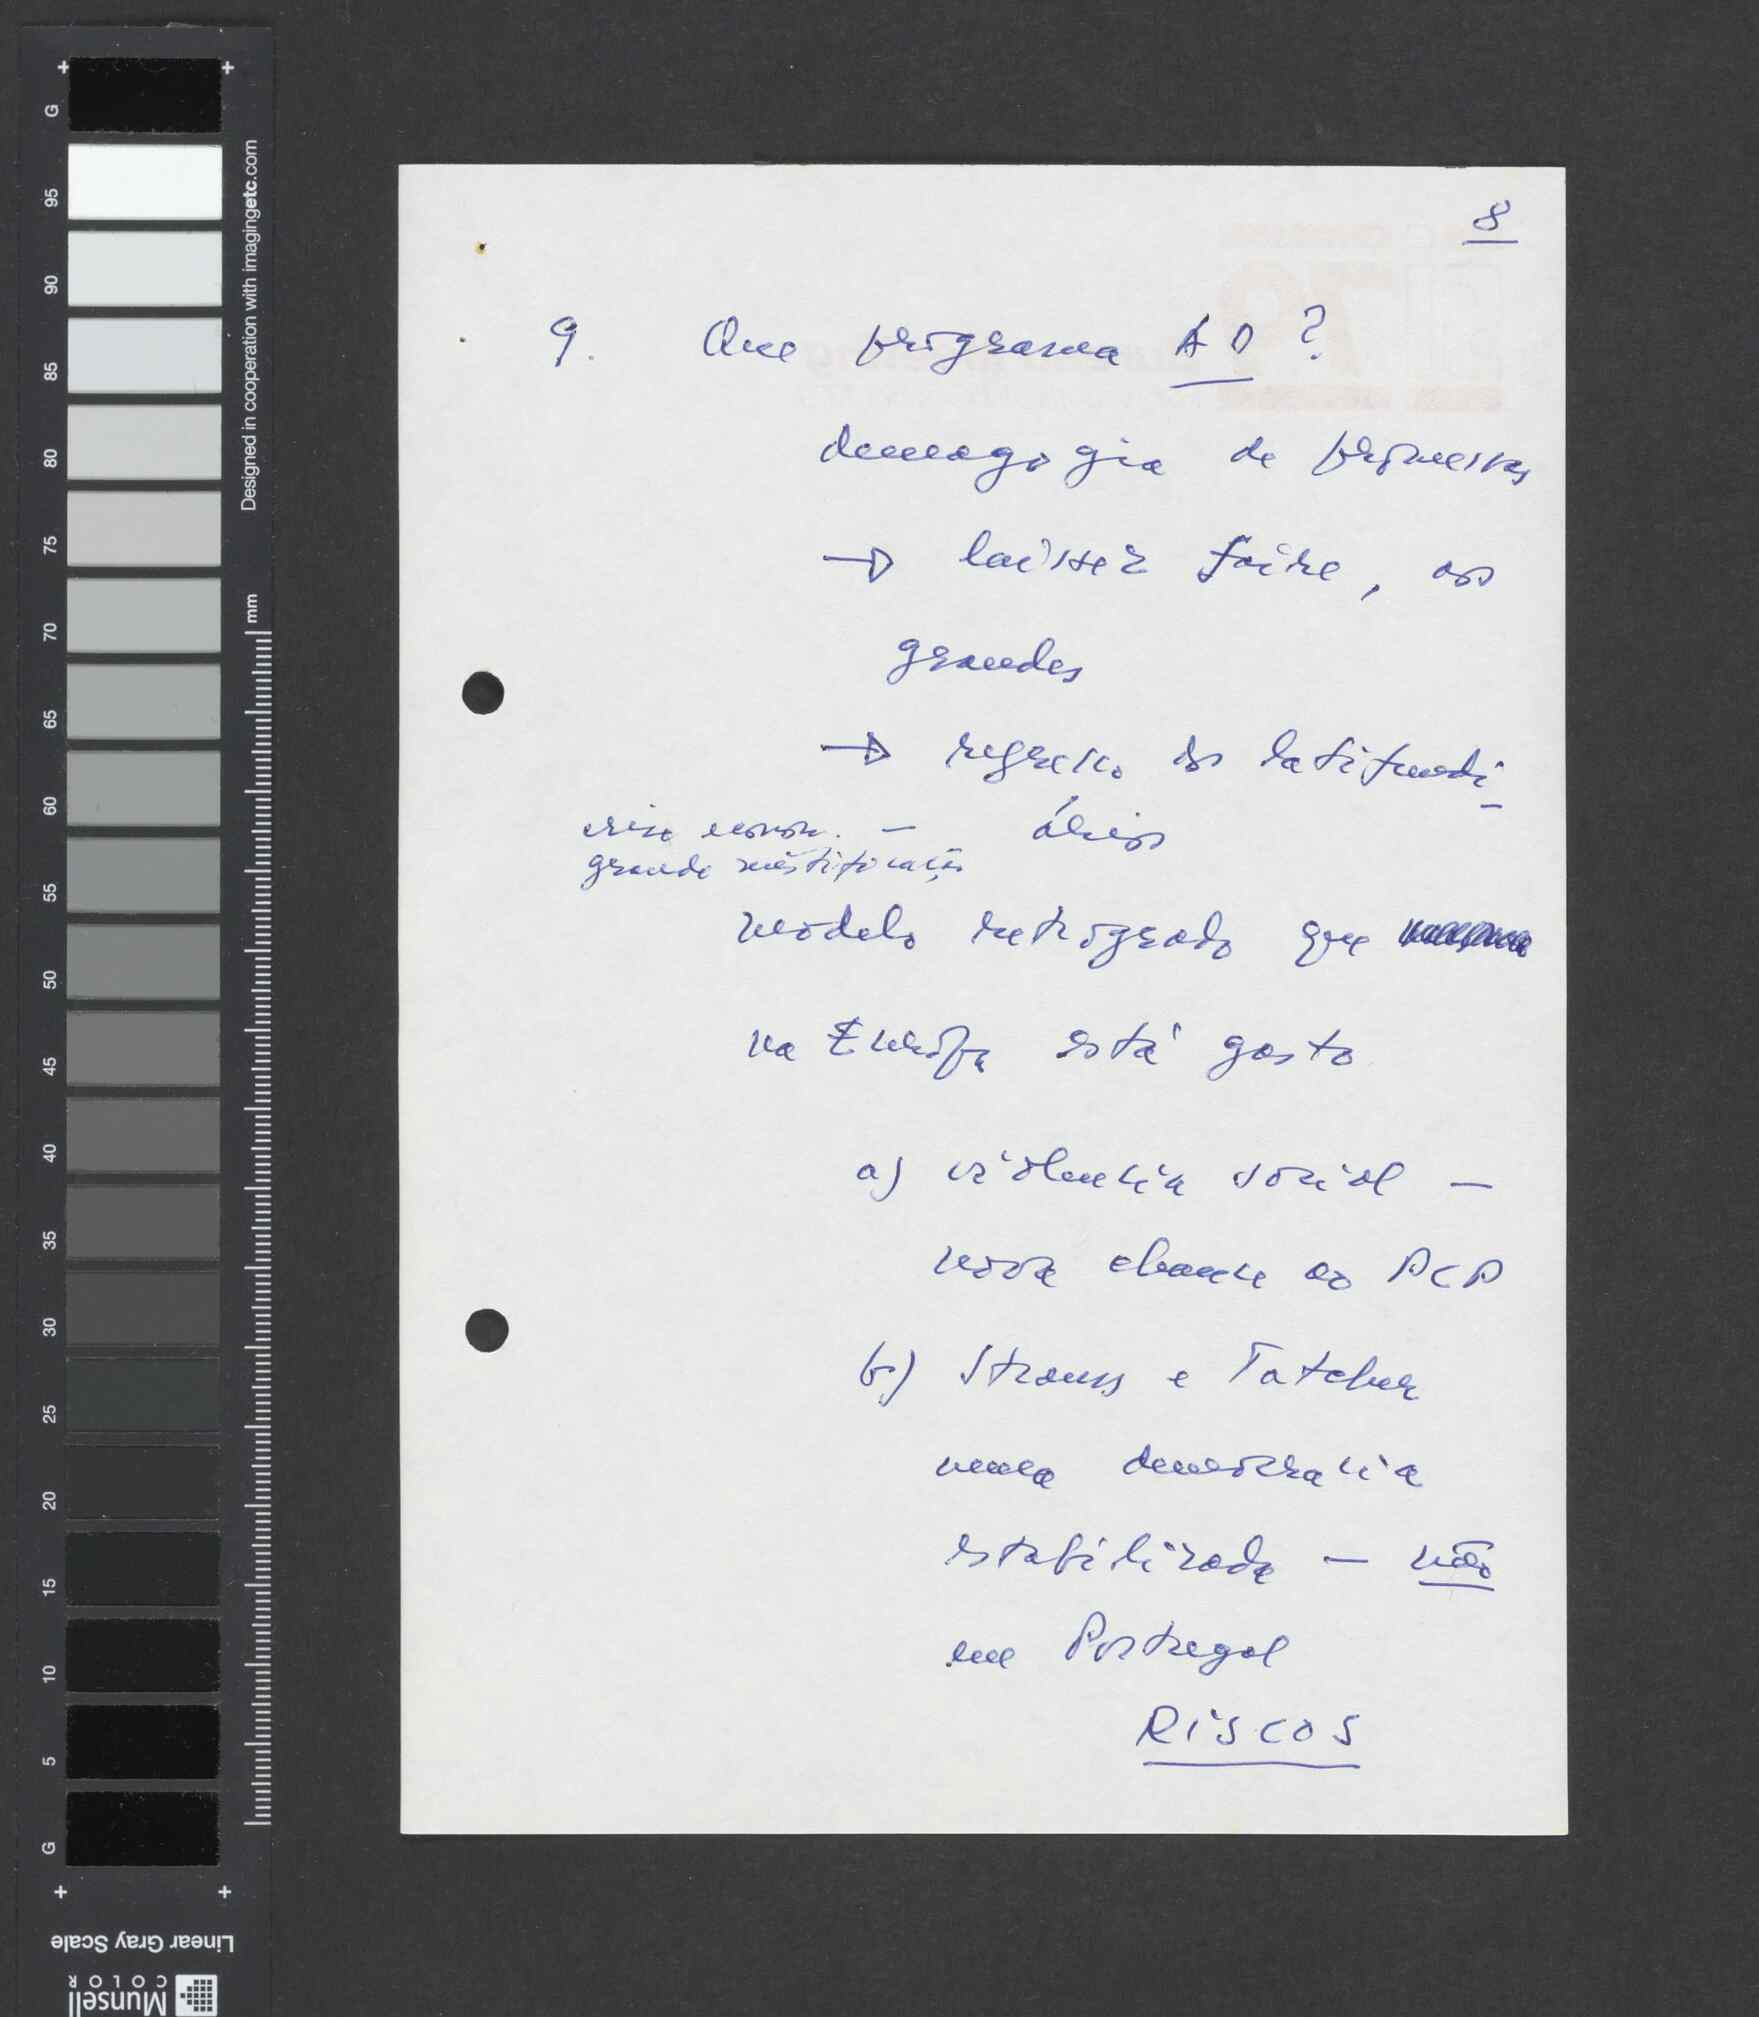 8
9. Que programa AD ?
demagogia de promessas
→ laisser faire, aos
grandes
→ regresso dos latifundi-
ários
crise econom. —
grande mistificação
modelo retrogrado que
na Europa está gasto
a) violência social —
nova chance ao PCP
b) Strauss e Tatcher
numa democracia
estabilizada — não
em Portugal
RISCOS
G
95
90
85
80
75
70
65
60
55
50
45
40
35
30
25
20
15
10
5
G
Designed in cooperation with imagingetc.com
mm
Linear Gray Scale
Munsell
COLOR